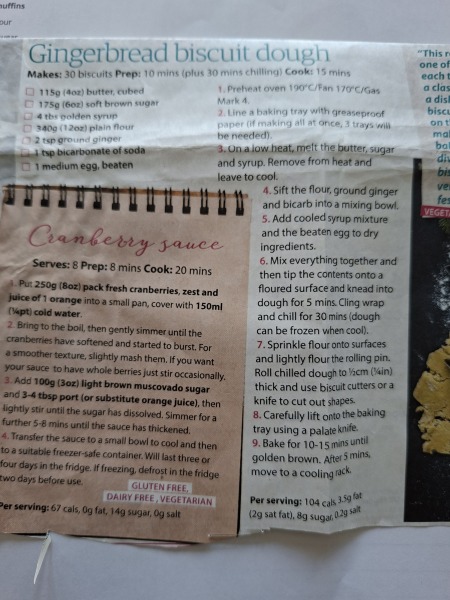 nuffins
our
Gingerbread biscuit dough
Makes: 30 biscuits Prep: 10 mins (plus 30 mins chilling) Cook: 15 mins
115g (4oz) butter, cubed
175g (6oz) soft brown sugar
4 tbs golden syrup
340g (12oz) plain flour
2 tsp ground ginger
1 tsp bicarbonate of soda
1 medium egg, beaten
1. Preheat oven 190°C/Fan 170°C/Gas
Mark 4.
2. Line a baking tray with greaseproof
paper (if making all at once, 3 trays will
be needed).
3. On a low heat, melt the butter, sugar
and syrup. Remove from heat and
leave to cool.
4. Sift the flour, ground ginger
and bicarb into a mixing bowl.
5. Add cooled syrup mixture
and the beaten egg to dry
ingredients.
6. Mix everything together and
then tip the contents onto a
floured surface and knead into
dough for 5 mins. Cling wrap
and chill for 30 mins (dough
can be frozen when cool).
7. Sprinkle flour onto surfaces
and lightly flour the rolling pin.
Roll chilled dough to ½cm (¼in)
thick and use biscuit cutters or a
knife to cut out shapes.
8. Carefully lift onto the baking
tray using a palate knife.
9. Bake for 10-15 mins until
golden brown. After 5 mins,
move to a cooling rack.
Per serving: 104 cals, 3.5g fat
(2g sat fat), 8g sugar, 0.2g salt
Cranberry sauce
Serves: 8 Prep: 8 mins Cook: 20 mins
1. Put 250g (8oz) pack fresh cranberries, zest and
juice of 1 orange into a small pan, cover with 150ml
(¼pt) cold water.
2. Bring to the boil, then gently simmer until the
cranberries have softened and started to burst. For
a smoother texture, slightly mash them. If you want
your sauce to have whole berries just stir occasionally.
3. Add 100g (3oz) light brown muscovado sugar
and 3-4 tbsp port (or substitute orange juice), then
lightly stir until the sugar has dissolved. Simmer for a
further 5-8 mins until the sauce has thickened.
4. Transfer the sauce to a small bowl to cool and then
to a suitable freezer-safe container. Will last three or
four days in the fridge. If freezing, defrost in the fridge
two days before use.
GLUTEN FREE,
DAIRY FREE, VEGETARIAN
Per serving: 67 cals, 0g fat, 14g sugar, 0g salt
"This r
one of
each t
a clas
a dis
biscu
on t
ma
bal
div
bis
ve
fes
VEGETA